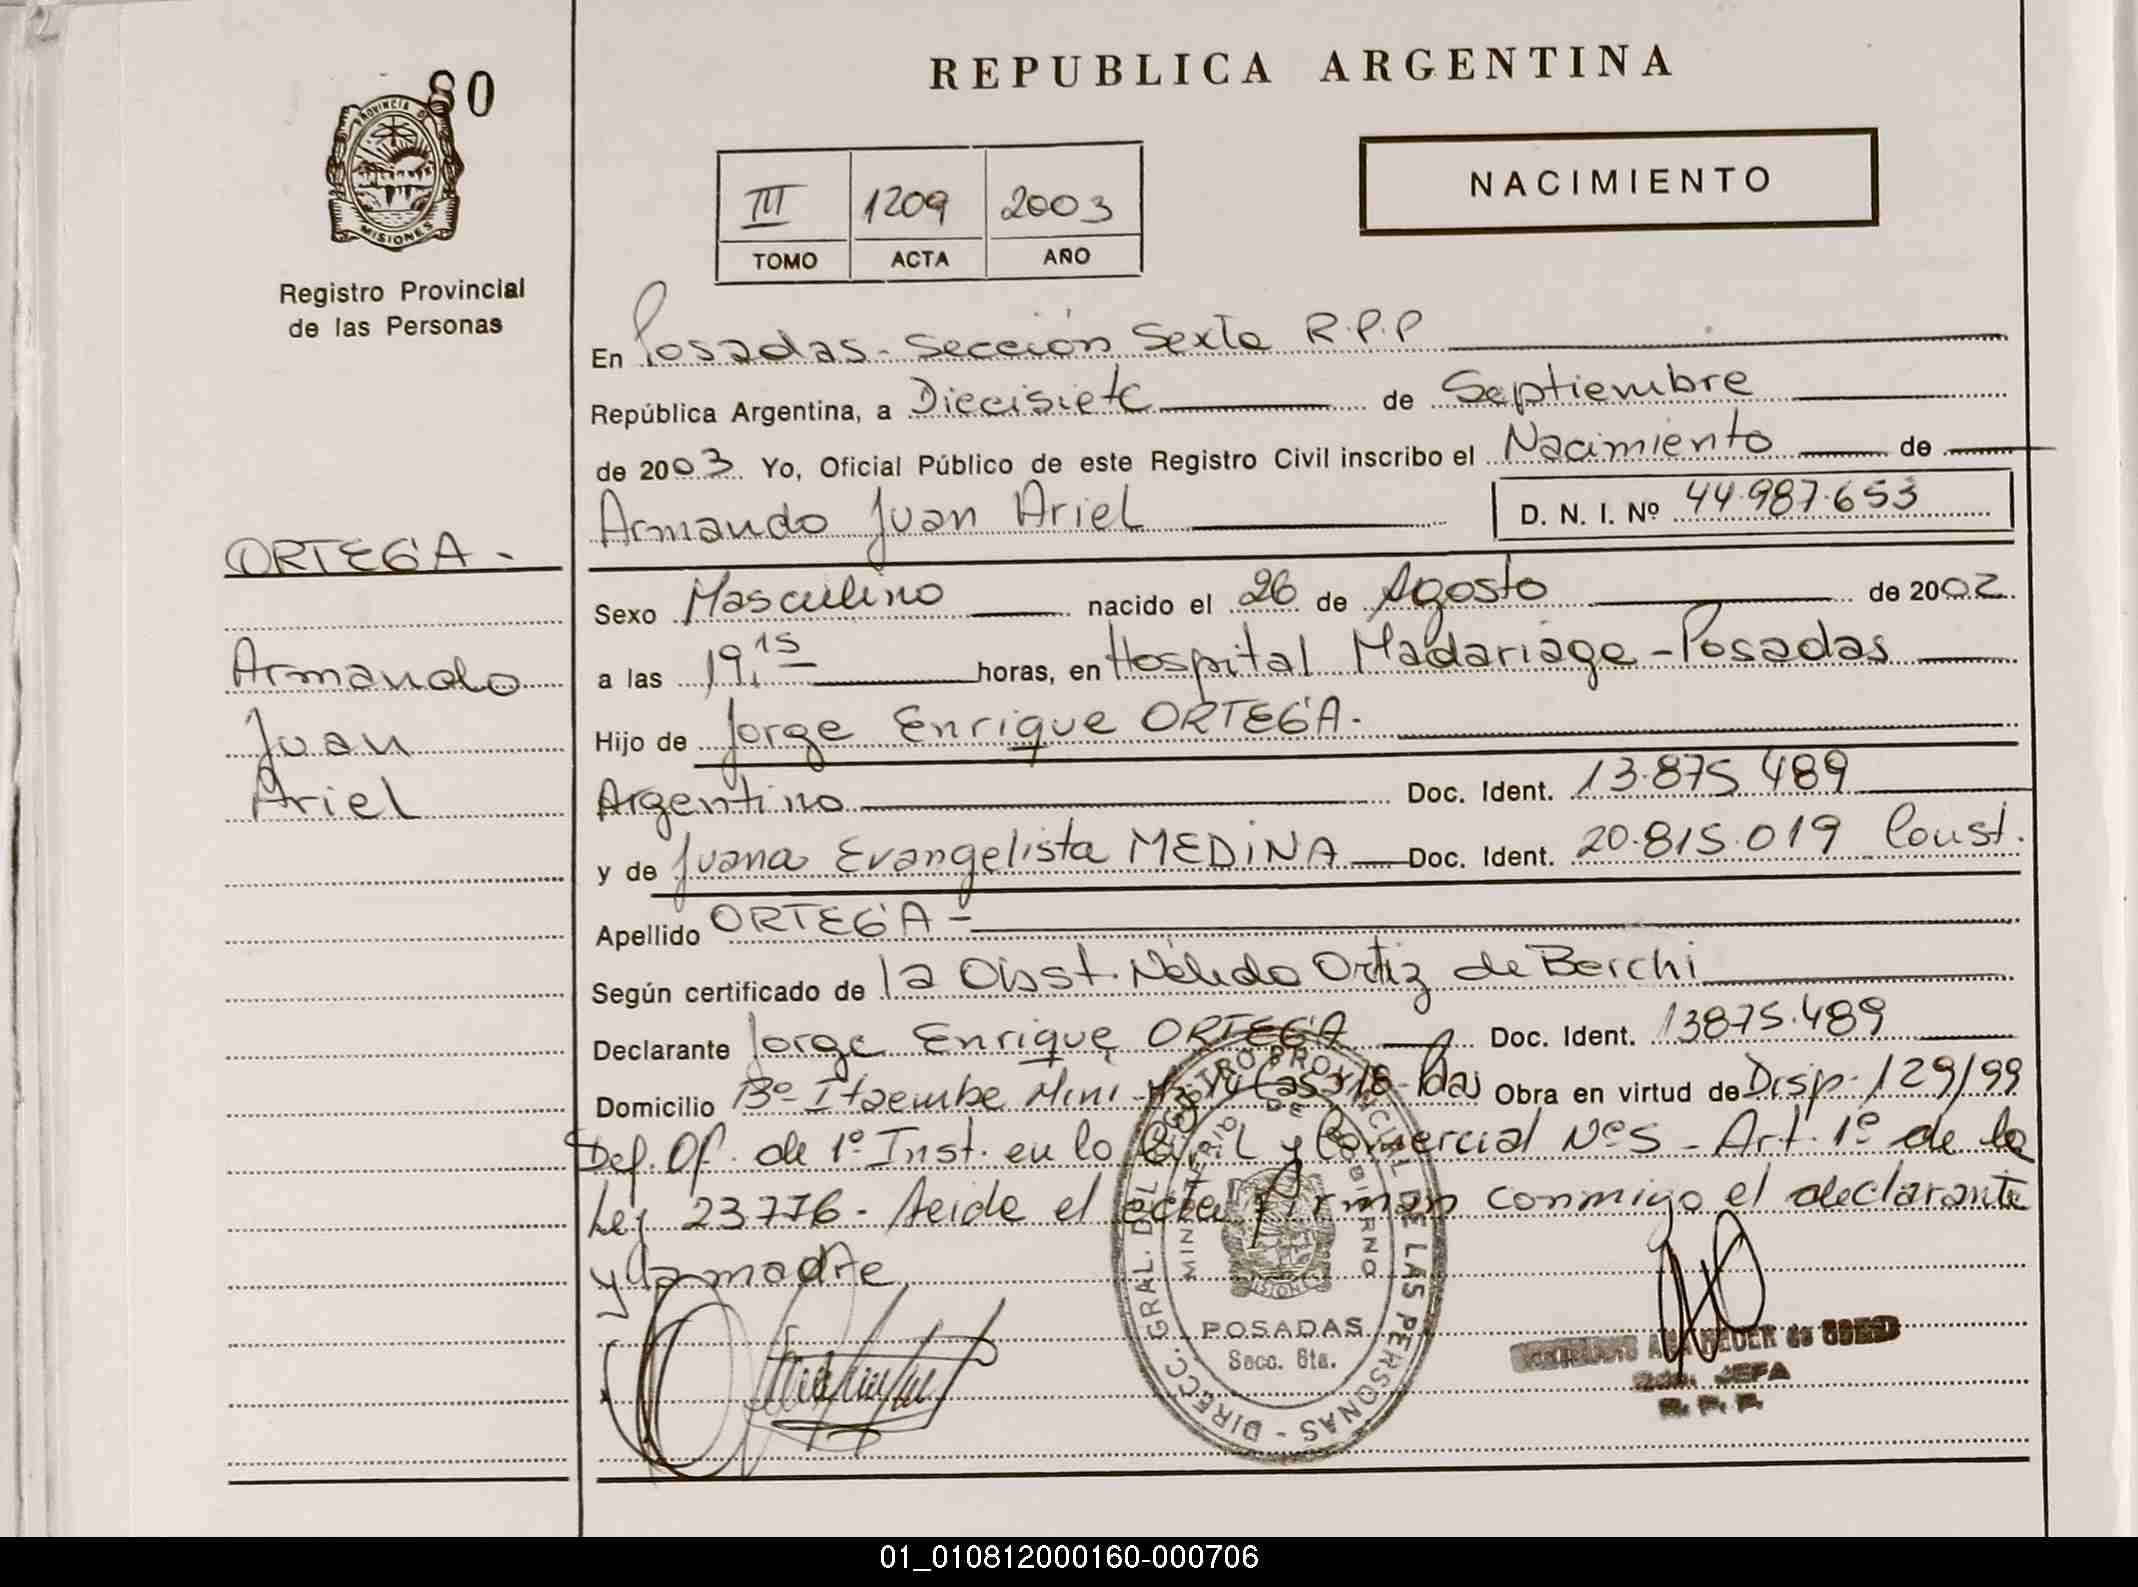 80
PROVINCIA DE
MISIONES
Registro Provincial
de las Personas
REPUBLICA ARGENTINA
III 1209 2003
TOMO ACTA AÑO
NACIMIENTO
En Posadas - Sección Sexta R.P.P
República Argentina, a Diecisiete de Septiembre
de 2003. Yo, Oficial Público de este Registro Civil inscribo el Nacimiento de
Armando Juan Ariel D. N. I. Nº 44.987.653
ORTEGA -
Armando
Juan
Ariel
Sexo Masculino nacido el 26 de Agosto de 2002.
a las 19.15 horas, en Hospital Madariaga - Posadas
Hijo de Jorge Enrique ORTEGA.
Argentino Doc. Ident. 13.875.489
y de Juana Evangelista MEDINA Doc. Ident. 20.815.019 Const.
Apellido ORTEGA -
Según certificado de la Obst. Nélida Ortiz de Berchi
Declarante Jorge Enrique ORTEGA Doc. Ident. 13875.489
Domicilio Bº Itaembe Mini - Mz 14 Casa 18 - Pdas Obra en virtud de Disp. 129/99
Def. Of. de 1º Inst. en lo Civil y Comercial Nº 5 - Art. 1º de la
Ley 23776 - Leída el acta firman conmigo el declarante
y la madre
DIRECC. GRAL. DEL REGISTRO PROVINCIAL DE LAS PERSONAS -
MINISTERIO DE GOBIERNO
MISIONES
POSADAS
Secc. 6ta.
de
JEFA
R. P. P.
01_010812000160-000706